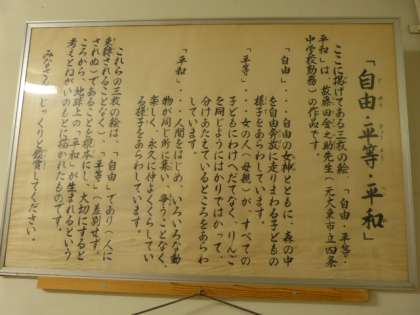 「自由・平等・平和」
ここに掲げてある三枚の絵 「自由・平等・
平和」は、故藤田金之助先生(元大東市立四条
中学校勤務)の作品です。
「自由」‥‥自由の女神とともに、森の中
を自由奔放に走りまわる子どもの
様子をあらわしています。
「平等」‥‥女の人(母親)が、すべての
子どもにわけへだてなく、りんご
を同じようにはかりではかって、
分けあたえているところをあらわ
しています。
「平和」‥‥人間をはじめ、いろいろな動
物が同じ所に集い、争うことなく、
楽しく、永久に仲よくくらしてい
る様子をあらわしています。
これらの三枚の絵は、「自由」であり(人に
束縛されることなく)、「平等」(差別せず、
されぬ)であることを根本にし、大切にすると
ころから、地球上の「平和」が生まれるという
考えとねがいのもとに描かれたものです。
みなさん、じっくりと鑑賞してください。